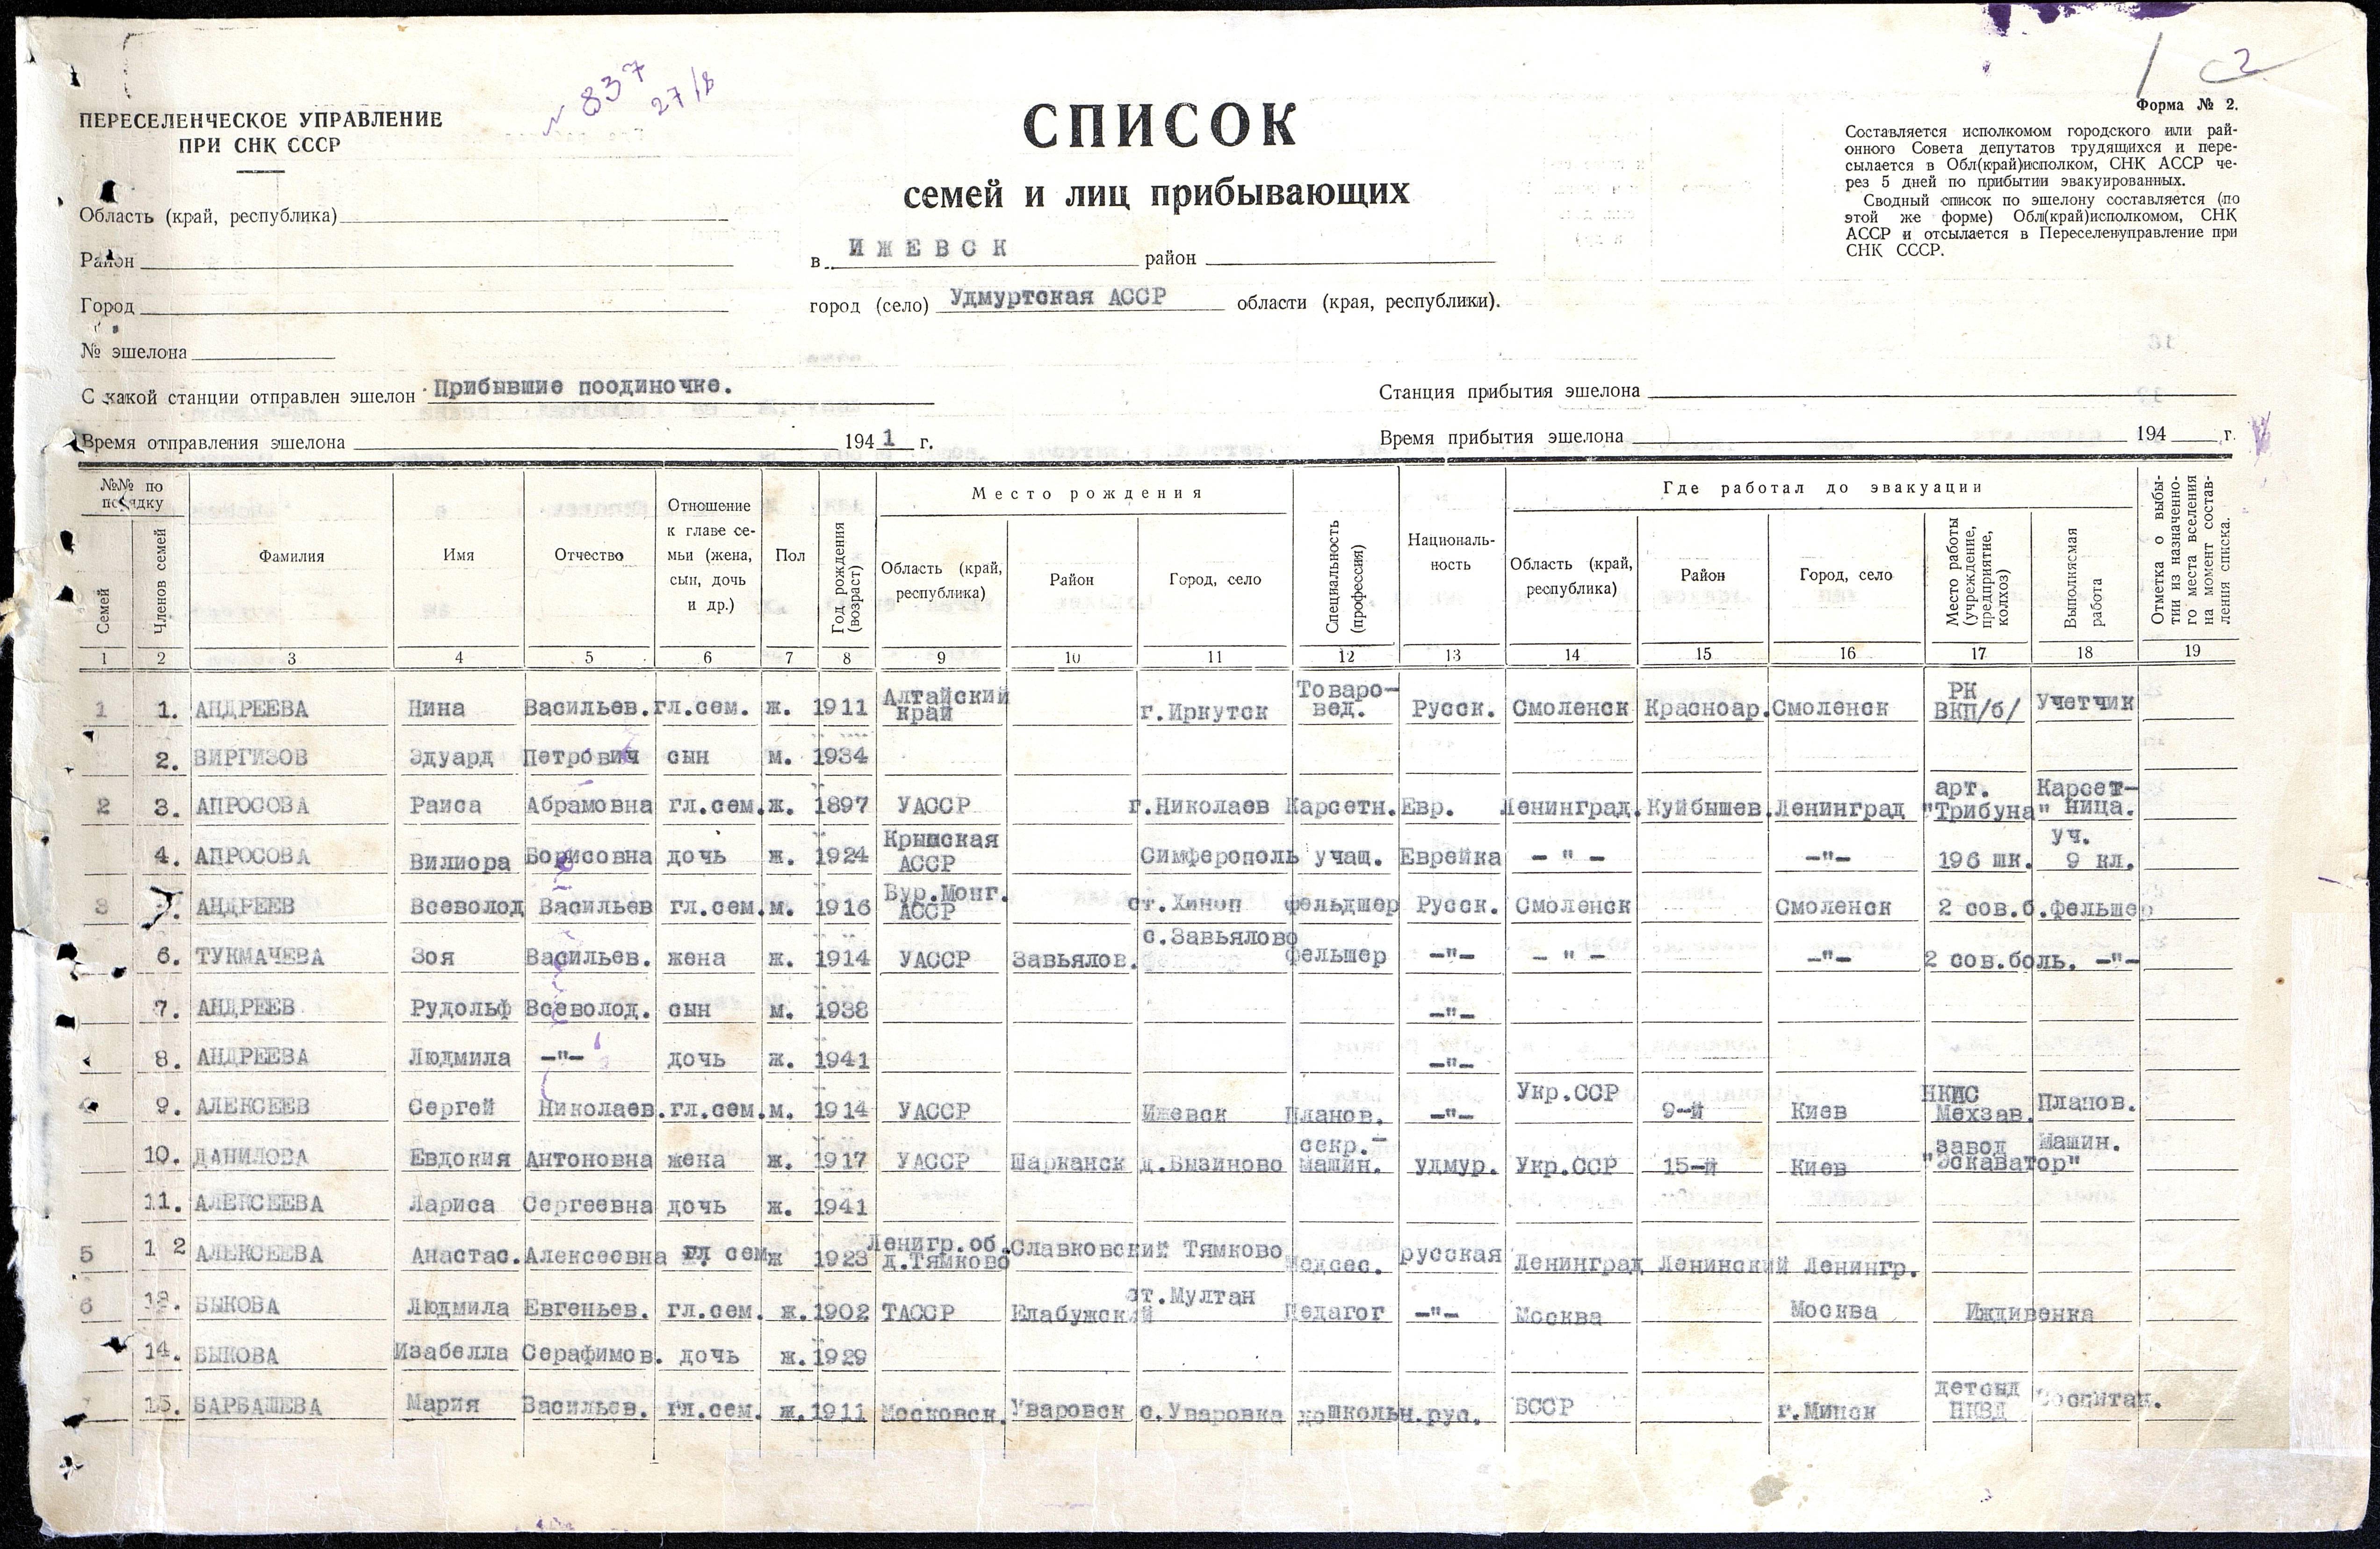 № 837
27/8
2
ПЕРЕСЕЛЕНЧЕСКОЕ УПРАВЛЕНИЕ
ПРИ СНК СССР
СПИСОК
семей и лиц прибывающих
Форма № 2.
Составляется исполкомом городского или рай-
онного Совета депутатов трудящихся и пере-
сылается в Обл(край)исполком, СНК АССР че-
рез 5 дней по прибытии эвакуированных.
Сводный список по эшелону составляется (по
этой же форме) Обл(край)исполкомом, СНК
АССР и отсылается в Переселенуправление при
СНК СССР.
Область (край, республика)
Район
в ИЖЕВСК район
Город
город (село) Удмуртская АССР области (края, республики).
№ эшелона
С какой станции отправлен эшелон Прибывшие поодиночке.
Станция прибытия эшелона
Время отправления эшелона 1941 г.
Время прибытия эшелона 194 г.
№№ по порядку
Семей
Членов семей
Фамилия
Имя
Отчество
Отношение к главе се-мьи (жена, сын, дочь и др.)
Пол
Год рождения (возраст)
Место рождения
Область (край, республика)
Район
Город, село
Специальность (профессия)
Националь-ность
Где работал до эвакуации
Область (край, республика)
Район
Город, село
Место работы (учреждение, предприятие, колхоз)
Выполняемая работа
Отметка о выбы-тии из назначенно-го места вселения на момент состав-ления списка.
1 2 3 4 5 6 7 8 9 10 11 12 13 14 15 16 17 18 19
1 1. АНДРЕЕВА Нина Васильев. гл.сем. ж. 1911 Алтайский край г.Иркутск Товаро-вед. Русск. Смоленск Красноар. Смоленск РК ВКП/б/ Учетчик
2. ВИРГИЗОВ Эдуард Петрович сын м. 1934
2 3. АПРОСОВА Раиса Абрамовна гл.сем. ж. 1897 УАССР г.Николаев Карсетн. Евр. Ленинград. Куйбышев. Ленинград арт. "Трибуна" Карсет-ница.
4. АПРОСОВА Вилиора Борисовна дочь ж. 1924 Крымская АССР Симферополь учащ. Еврейка - " - -"- 196 шк. уч. 9 кл.
3 5. АНДРЕЕВ Всеволод Васильев гл.сем. м. 1916 Бур.Монг. АССР ст.Хиноп фельдшер Русск. Смоленск Смоленск 2 сов.б. фельшер
6. ТУКМАЧЕВА Зоя Васильев. жена ж. 1914 УАССР Завьялов. с.Завьялово фельшер -"- - " - -"- 2 сов.боль. -"-
7. АНДРЕЕВ Рудольф Всеволод. сын м. 1938 -"-
8. АНДРЕЕВА Людмила -"- дочь ж. 1941 -"-
9. АЛЕКСЕЕВ Сергей Николаев. гл.сем. м. 1914 УАССР Ижевск Планов. -"- Укр.ССР 9-й Киев Мехзав. Планов.
10. ДАНИЛОВА Евдокия Антоновна жена ж. 1917 УАССР Шарканск д.Вызиново секр.- машин. удмур. Укр.ССР 15-й Киев завод "Эскаватор" Машин.
11. АЛЕКСЕЕВА Лариса Сергеевна дочь ж. 1941
5 12 АЛЕКСЕЕВА Анастас. Алексеевна гл сем. ж 1923 Ленигр.об. д.Тямково Славковский Тямково Медсес. русская Ленинград Ленинский Ленингр.
6 13. БЫКОВА Людмила Евгеньев. гл.сем. ж. 1902 ТАССР Елабужский ст.Мултан Педагог -"- Москва Москва Иждивенка
14. БЫКОВА Изабелла Серафимов. дочь ж. 1929
15. БАРБАШЕВА Мария Васильев. гл.сем. ж. 1911 Московск. Уваровск с.Уваровка дошкольн. рус. БССР г.Минск детсад НКВД Воспитат.